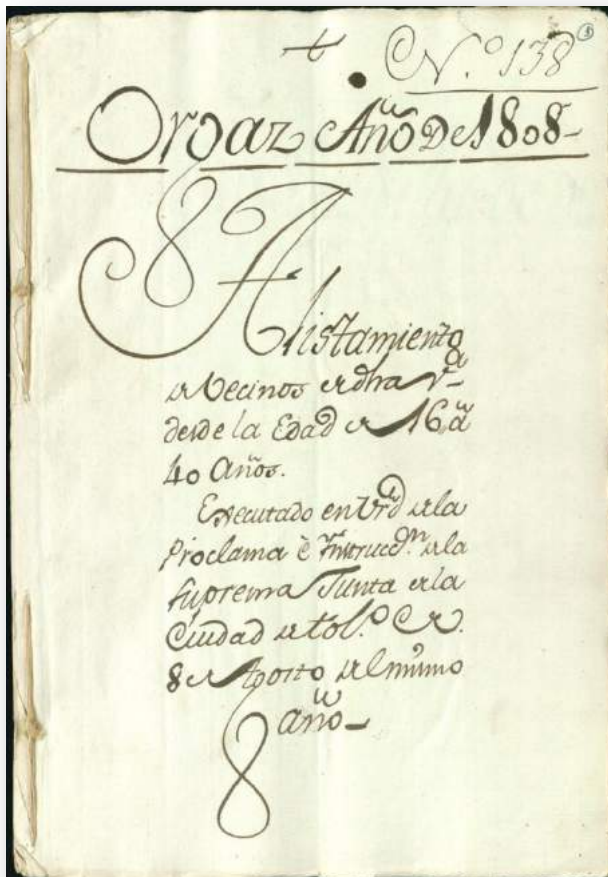 N.º 138
Orgaz Año De 1808-
Alistamiento
de Vecinos de dha Vª
desde la Edad de 16 a
40 Años.
Executado en Vrd de la
Proclama è Ynstruccⁿ. de la
suprema Junta de la
Ciudad de Tol.º
8 de Agosto del mismo
año-